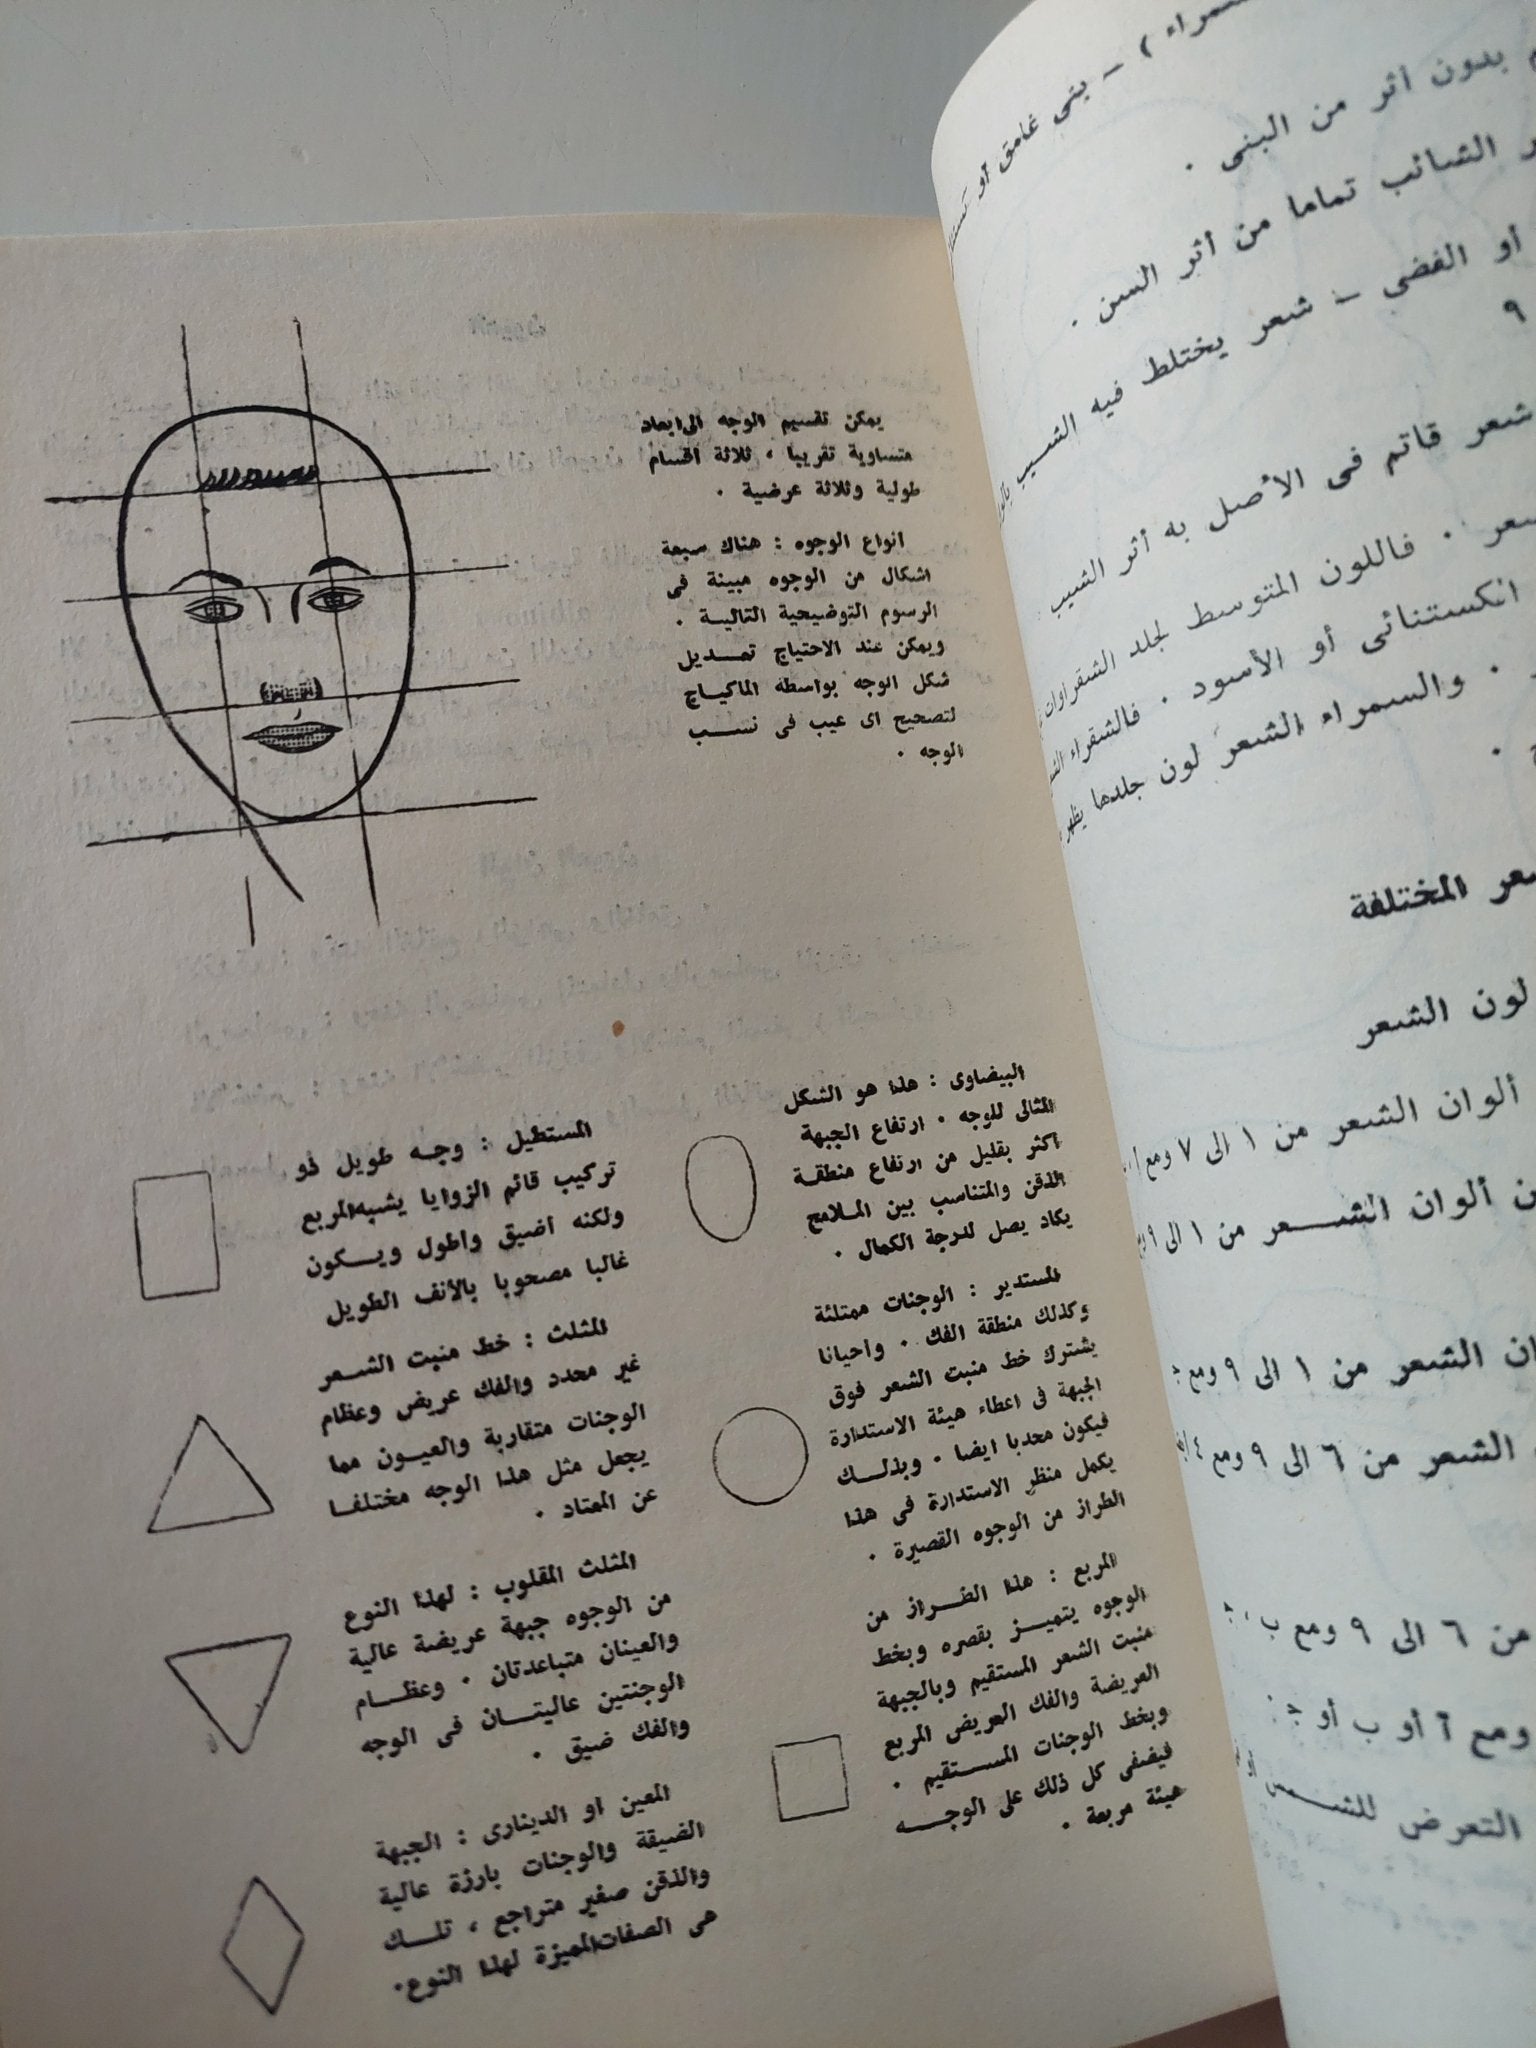 يمكن تقسيم الوجه الى ابعاد
متساوية تقريبا ، ثلاثة اقسام
طولية وثلاثة عرضية .
انواع الوجوه : هناك سبعة
اشكال من الوجوه مبينة فى
الرسوم التوضيحية التاليـة .
ويمكن عند الاحتياج تعـديل
شكل الوجه بواسطه الماكياج
لتصحيح اى عيب فى نسـب
الوجه .
البيضاوى : هذا هو الشكل
المثالى للوجه . ارتفاع الجبهة
اكثر بقليل من ارتفاع منطقـة
الذقن والمتناسب بين المـلامح
يكاد يصل لدرجة الكمال .
المستدير : الوجنات ممتلئة
وكذلك منطقة الفك . واحيانا
يشترك خط منبت الشعر فوق
الجبهة فى اعطاء هيئة الاستدارة
فيكون محدبا ايضا . وبذلـك
يكمل منظر الاستدارة فى هذا
الطراز من الوجوه القصيرة .
المربع : هذا الطـراز من
الوجوه يتميـز بقصره وبخط
منبت الشعر المستقيم وبالجبهة
العريضة والفك العريض المربع
وبخط الوجنات المسـتقيم .
فيضفى كل ذلك على الوجـه
هيئة مربعة .
المستطيل : وجـه طويل ذو
تركيب قائم الزوايا يشبه المربع
ولكنه اضيق واطول ويـكون
غالبا مصحوبا بالأنف الطويل
المثلث : خط منبت الشـعر
غير محدد والفك عريض وعظام
الوجنات متقاربة والعيـون مما
يجعل مثل هذا الوجه مختلفـا
عن المعتاد .
المثلث المقلوب : لهذا النوع
من الوجوه جبهة عريضة عالية
والعينان متباعدتان . وعظـام
الوجنتين عاليتـان فى الوجه
والفك ضيق .
المعين او الدينارى : الجبهة
الضيقة والوجنات بارزة عالية
والذقن صغير متراجع ، تلـك
هى الصفات المميزة لهذا النوع .
سمراء ) – بنى غامق أو
بدون أثر من البنى .
الشائب تماما من أثر السن .
أو الفضى – شعر يختلط فيه الشـيب
٩
شعر قاتم فى الأصل به أثر الشيب
فاللون المتوسط لجلد الشقراوات
انكستنائى أو الأسود . فالشقراء
. والسمراء الشعر لون جلدها يظهر
المختلفة
لون الشعر
ألوان الشعر من ١ الى ٧ ومع أ
ألوان الشـــعر من ١ الى ٩
الشعر من ١ الى ٩ ومع ج
الشعر من ٦ الى ٩ ومع ٤
من ٦ الى ٩ ومع ب ، ج
ومع آ أو ب أو ج
التعرض للشـــمس أو